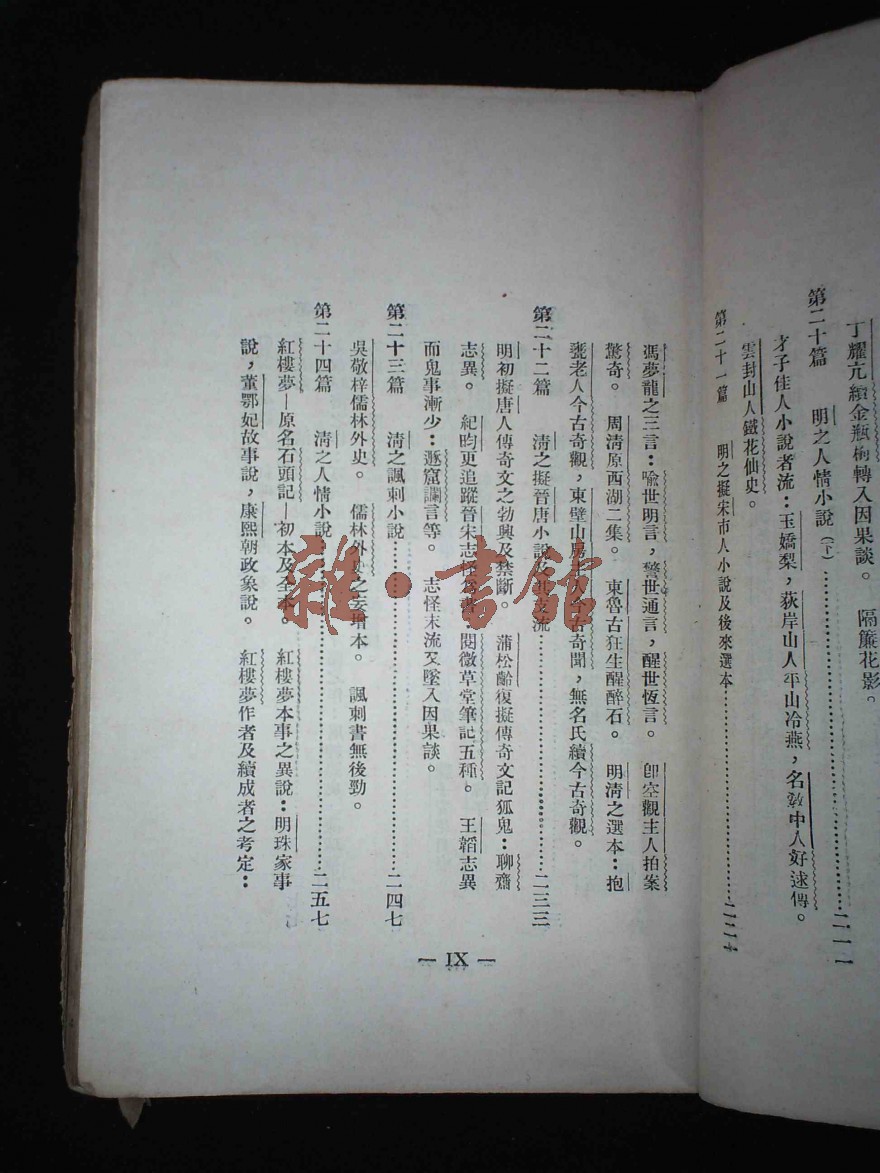 丁耀亢續金瓶梅轉入因果談。　隔簾花影。
第二十篇　明之人情小說(下)…………二一一
才子佳人小說者流：玉嬌梨，荻岸山人平山冷燕，名敎中人好逑傳。
雲封山人鐵花仙史。
第二十一篇　明之擬宋市人小說及後來選本…………
馮夢龍之三言：喩世明言，警世通言，醒世恆言。　卽空觀主人拍案
驚奇。　周清原西湖二集。　東魯古狂生醒醉石。　明清之選本：抱
甕老人今古奇觀，東壁山房主人今古奇聞，無名氏續今古奇觀。
第二十二篇　清之擬晉唐小說及其支流…………二三三
明初擬唐人傳奇文之勃興及禁斷。　蒲松齡復擬傳奇文記狐鬼：聊齋
志異。　紀昀更追蹤晉宋志怪爲書：閱微草堂筆記五種。　王韜志異
而鬼事漸少：遯窟讕言等。　志怪末流又墜入因果談。
第二十三篇　清之諷刺小說…………二四七
吳敬梓儒林外史。　儒林外史之妄增本。　諷刺書無後勁。
第二十四篇　清之人情小說…………二五七
紅樓夢—原名石頭記—初本及全本。　紅樓夢本事之異說：明珠家事
說，董鄂妃故事說，康熙朝政象說。　紅樓夢作者及續成者之考定：
— IX —
雜·書館